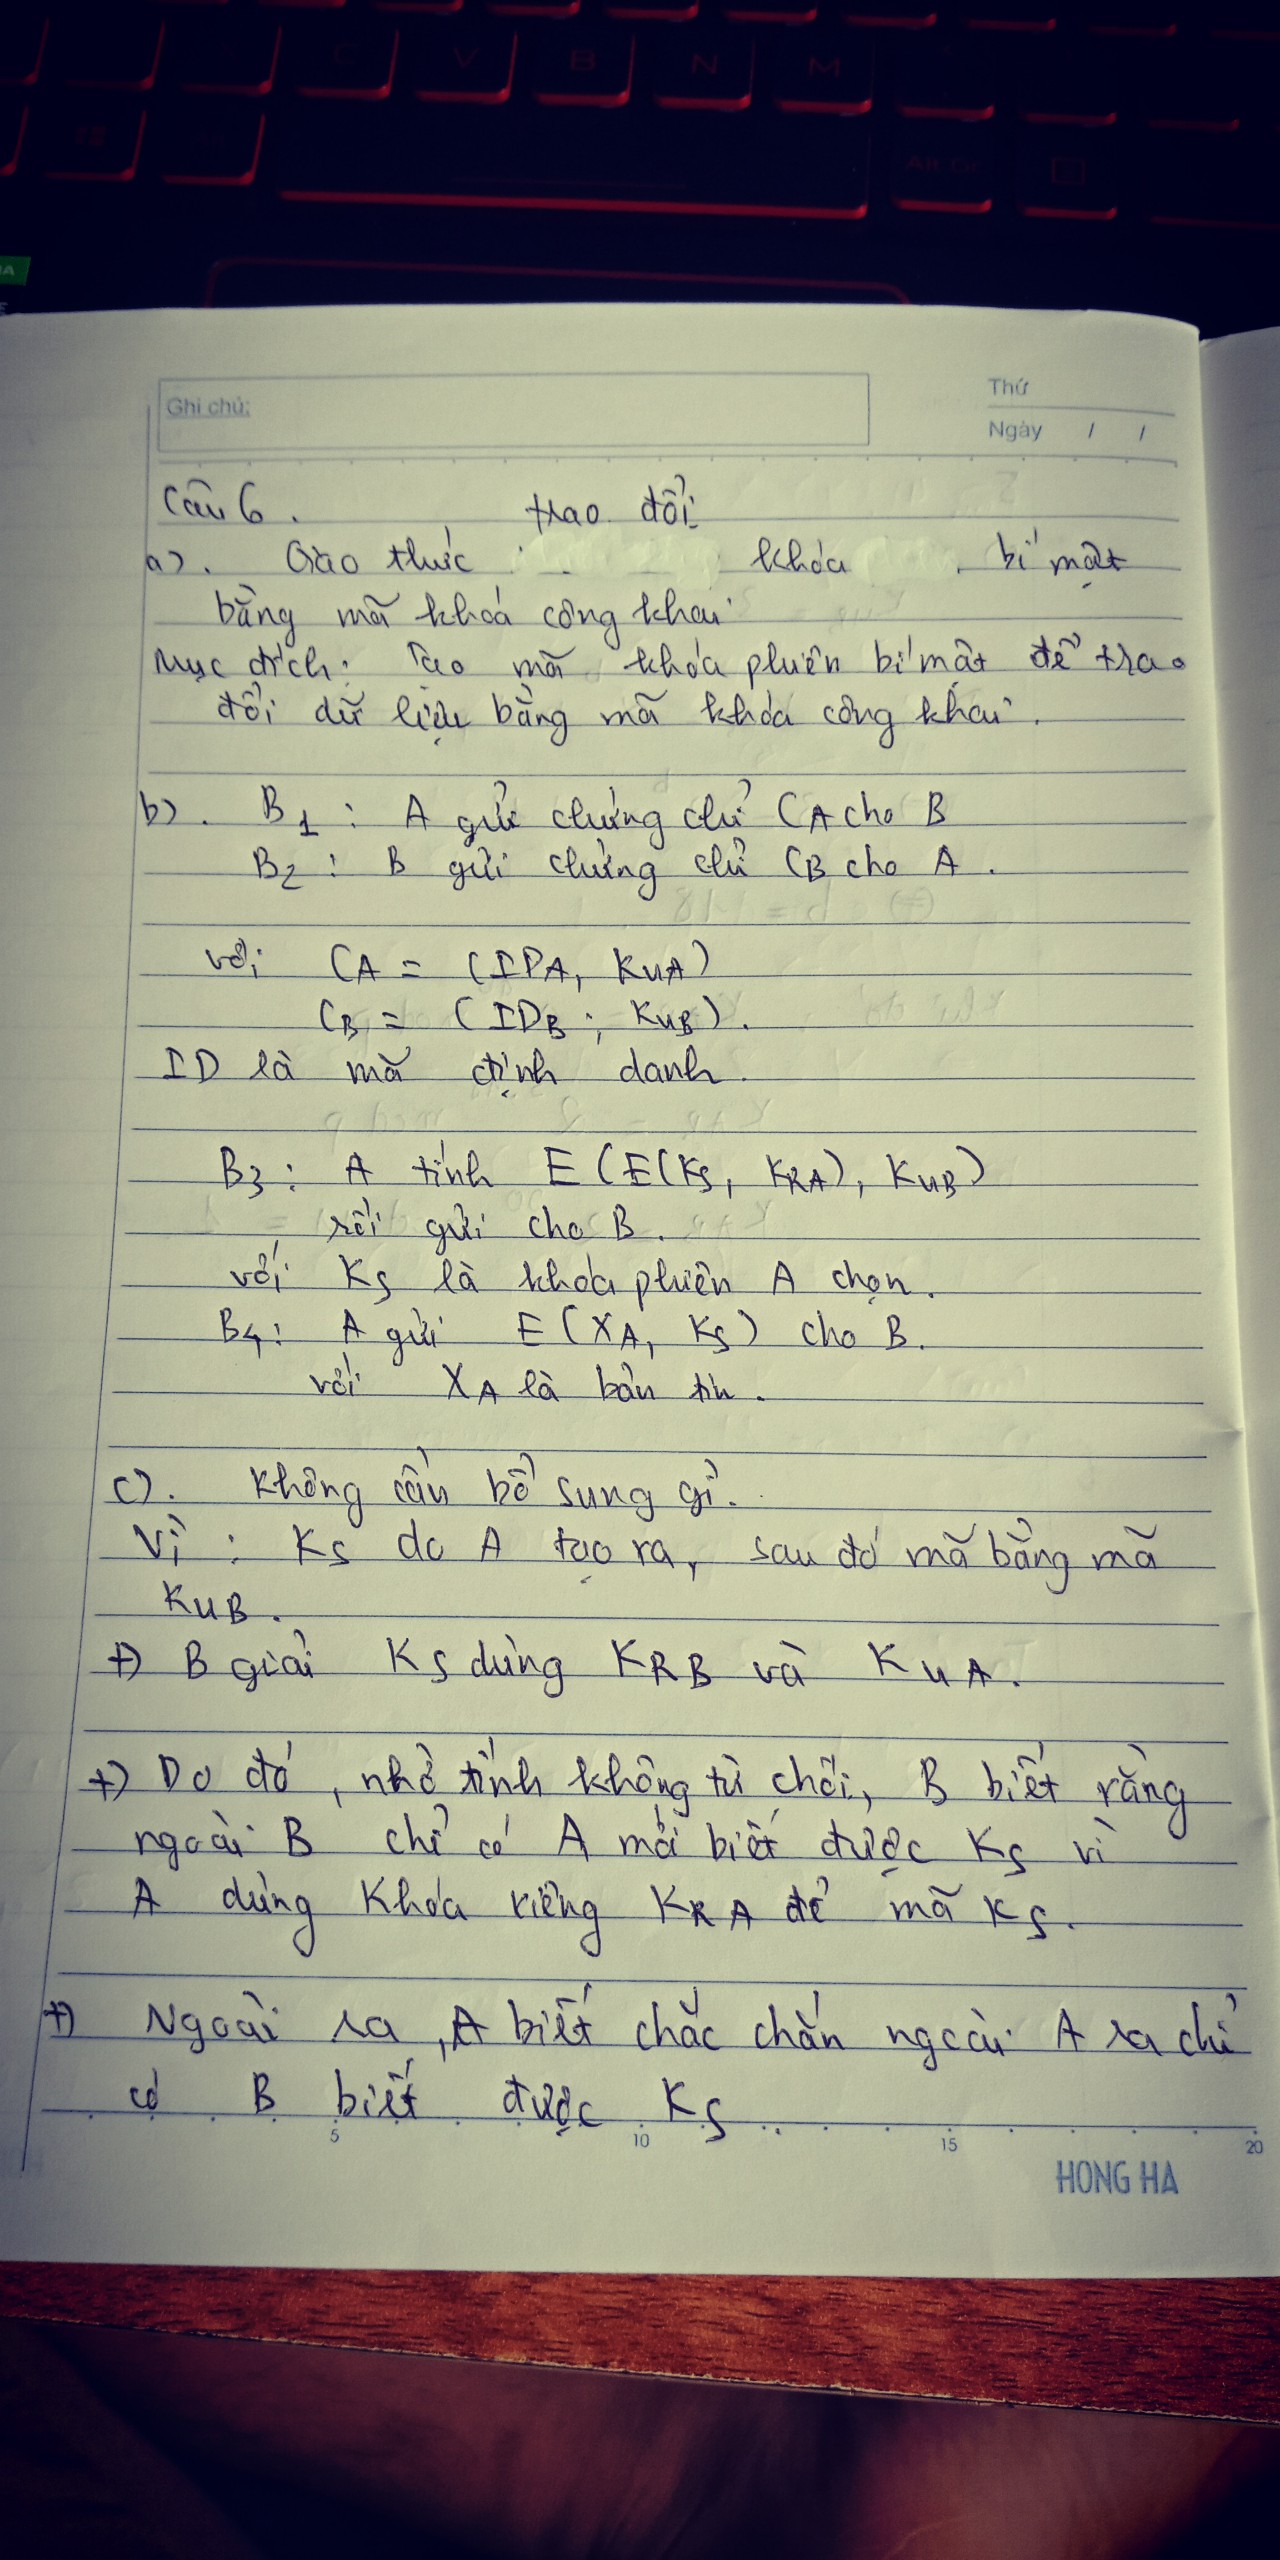 Ghi chú:
Thứ
Ngày / /
Câu 6.
trao đổi
a). Giao thức khóa bí mật
bằng mã khoá công khai
Mục đích: Tạo mã khóa phiên bí mật để trao
đổi dữ liệu bằng mã khóa công khai.
b). B1: A gửi chứng chỉ CA cho B
B2: B gửi chứng chỉ CB cho A.
với CA = (IDA, KUA)
CB = (IDB; KUB).
ID là mã định danh
B3: A tính E(E(KS, KRA), KUB)
rồi gửi cho B.
với KS là khóa phiên A chọn.
B4: A gửi E(XA, KS) cho B.
với XA là bản tin.
c). Không cần bổ sung gì.
Vì: KS do A tạo ra, sau đó mã bằng mã
KUB.
+) B giải KS dùng KRB và KUA.
+) Do đó, nhờ tính không từ chối, B biết rằng
ngoài B chỉ có A mới biết được KS vì
A dùng khóa riêng KRA để mã KS.
+) Ngoài ra, A biết chắc chắn ngoài A ra chỉ
có B biết được KS
5 10 15 20
HONG HA